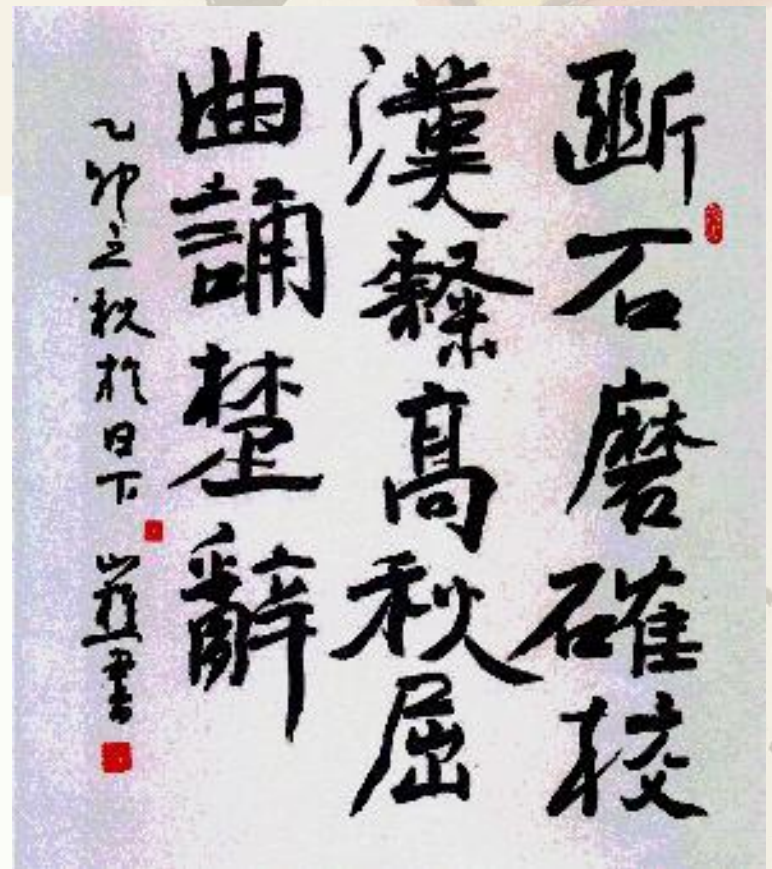 斷石磨確校
漢隸高秋屈
曲誦楚辭
乙卯之秋於日下 書